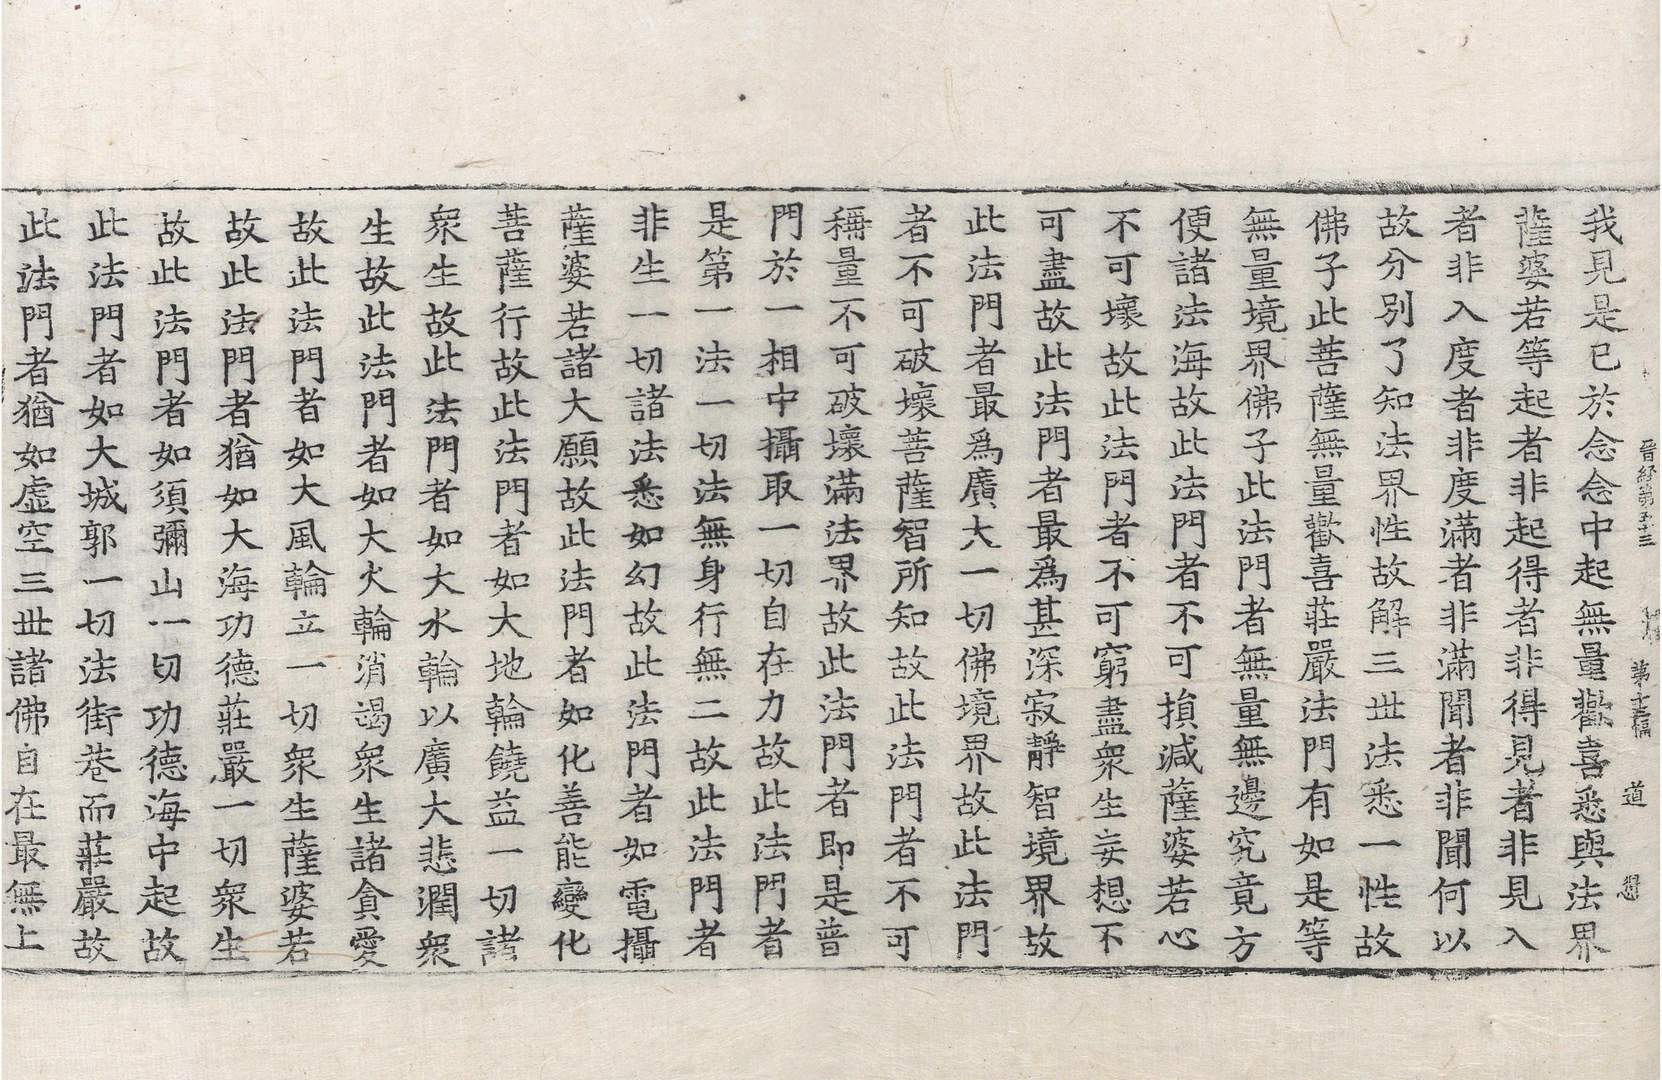 晉經第五十三 第十三幅 道
我見是已於念念中起無量歡喜悉與法界
薩婆若等起者非起得者非得見者非見入
者非入度者非度滿者非滿聞者非聞何以
故分別了知法界性故解三世法悉一性故
佛子此菩薩無量歡喜莊嚴法門有如是等
無量境界佛子此法門者無量無邊究竟方
便諸法海故此法門者不可損減薩婆若心
不可壞故此法門者不可窮盡衆生妄想不
可盡故此法門者最爲甚深寂靜智境界故
此法門者最爲廣大一切佛境界故此法門
者不可破壞菩薩智所知故此法門者不可
稱量不可破壞滿法界故此法門者即是普
門於一相中攝取一切自在力故此法門者
是第一法一切法無身行無二故此法門者
非生一切諸法悉如幻故此法門者如電攝
薩婆若諸大願故此法門者如化善能變化
菩薩行故此法門者如大地輪饒益一切諸
衆生故此法門者如大水輪以廣大悲潤衆
生故此法門者如大火輪消竭衆生諸貪愛
故此法門者如大風輪立一切衆生薩婆若
故此法門者猶如大海功德莊嚴一切衆生
故此法門者如須彌山一切功德海中起故
此法門者如大城郭一切法街巷而莊嚴故
此法門者猶如虛空三世諸佛自在最無上